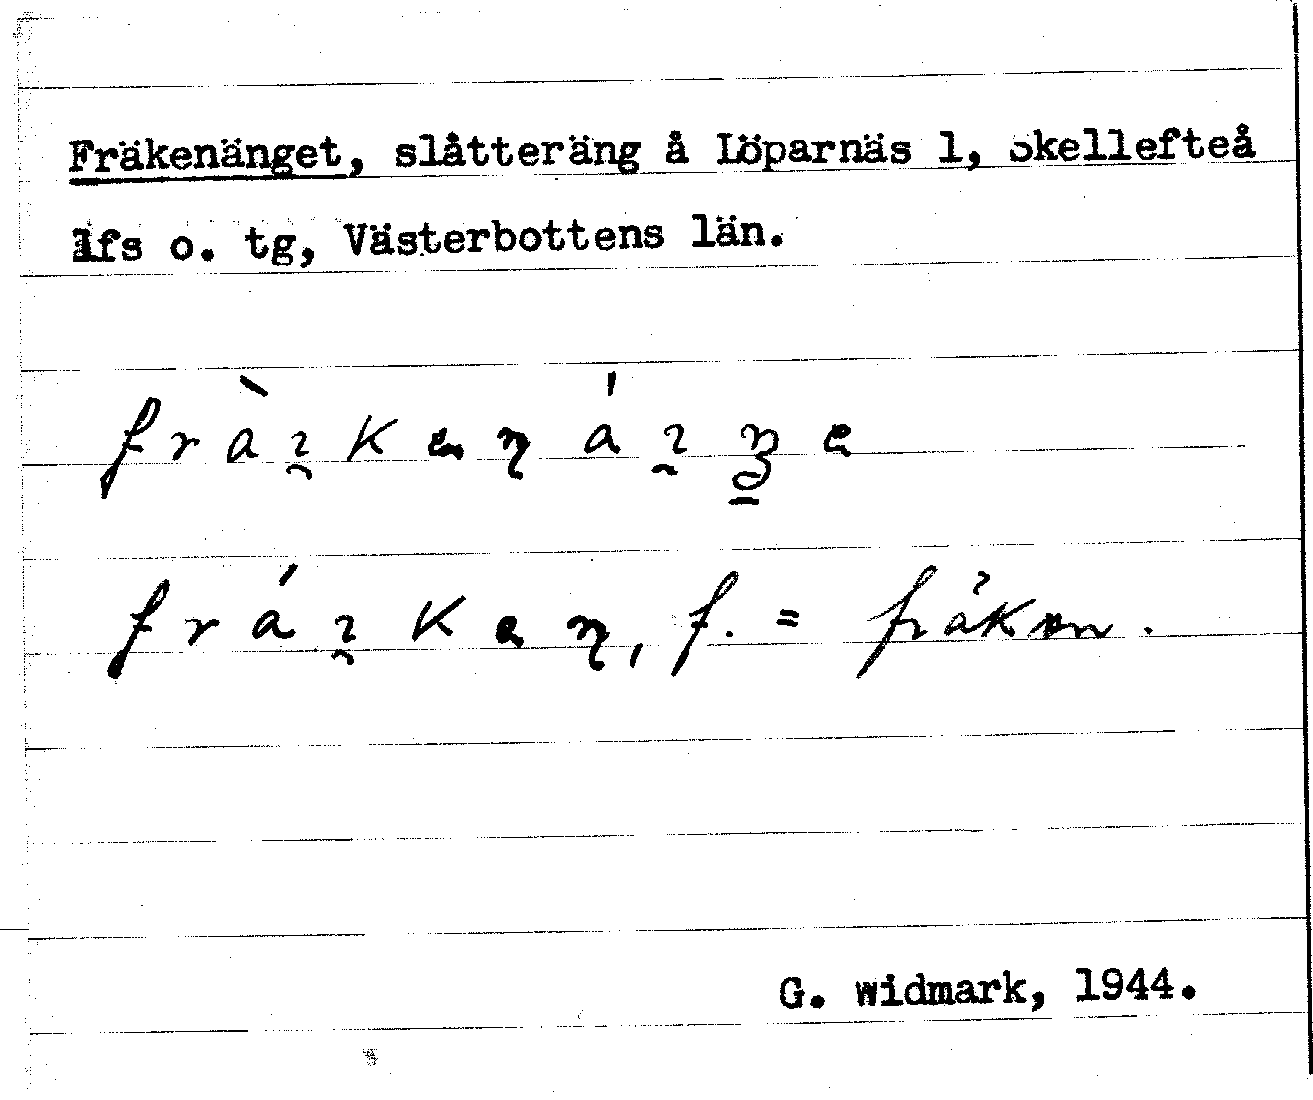 Fräkenänget, slåtteräng å Löparnäs 1, Skellefteå
lfs o. tg, Västerbottens län.
f., = fräken.
G. Widmark, 1944.